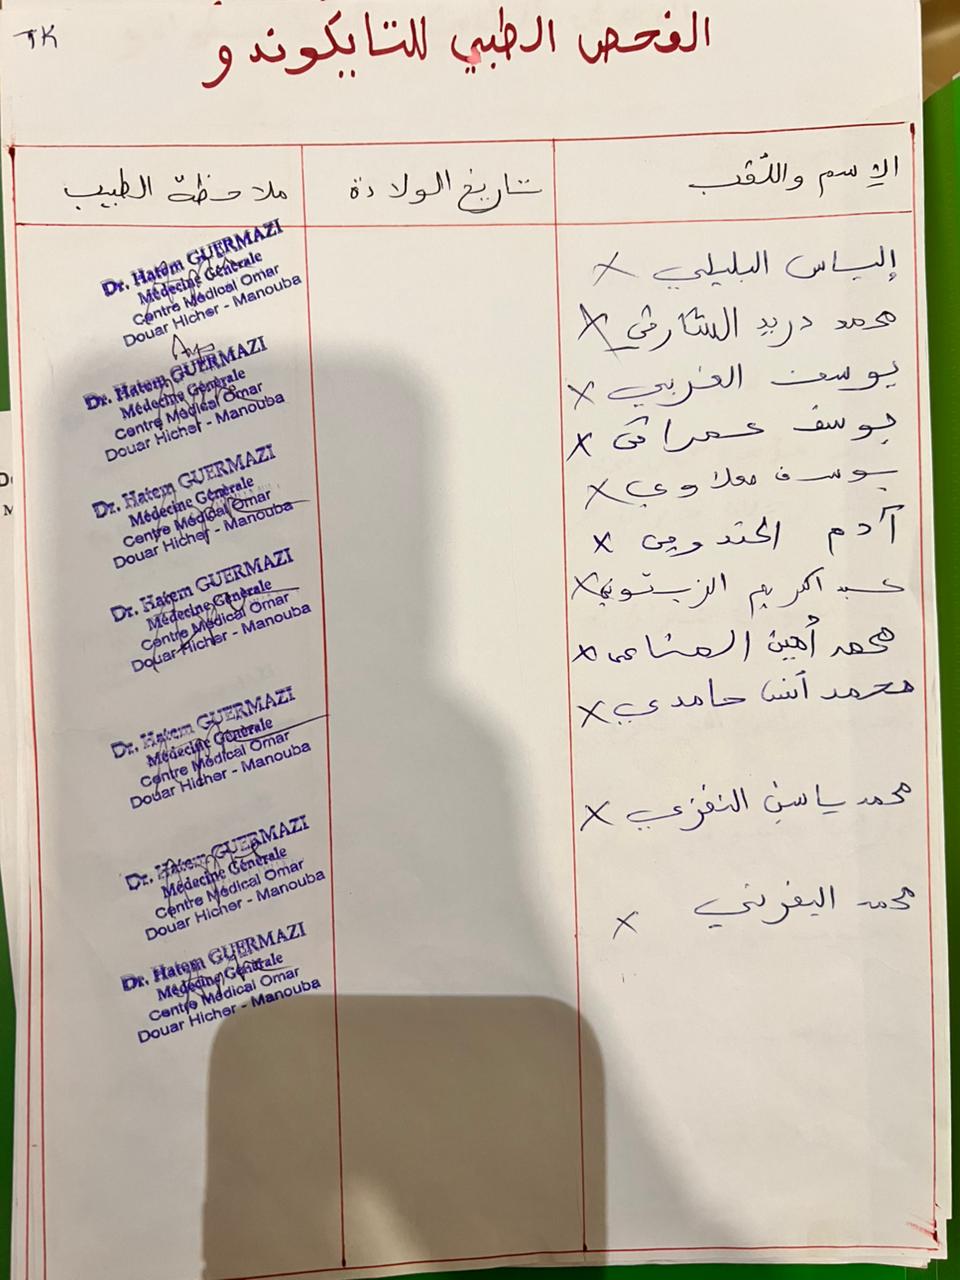 TK
الفحص الطبي للتايكوندو
الإسم واللقب
تاريخ الولادة
ملاحظة الطبيب
إلياس البليلي X
محمد دريد الشارني X
يوسف الغربي X
يوسف عمراني X
يوسف معلاوي X
آدم الجندوبي X
عبد الكريم الزيتوني X
محمد أمين المناعي X
محمد أنس حامدي X
محمد ياسين النفزي X
محمد اليفرني X
Dr. Hatem GUERMAZI
Médecine Générale
Centre Médical Omar
Douar Hicher - Manouba
Dr. Hatem GUERMAZI
Médecine Générale
Centre Médical Omar
Douar Hicher - Manouba
Dr. Hatem GUERMAZI
Médecine Générale
Centre Médical Omar
Douar Hicher - Manouba
Dr. Hatem GUERMAZI
Médecine Générale
Centre Médical Omar
Douar Hicher - Manouba
Dr. Hatem GUERMAZI
Médecine Générale
Centre Médical Omar
Douar Hicher - Manouba
Dr. Hatem GUERMAZI
Médecine Générale
Centre Médical Omar
Douar Hicher - Manouba
Dr. Hatem GUERMAZI
Médecine Générale
Centre Médical Omar
Douar Hicher - Manouba